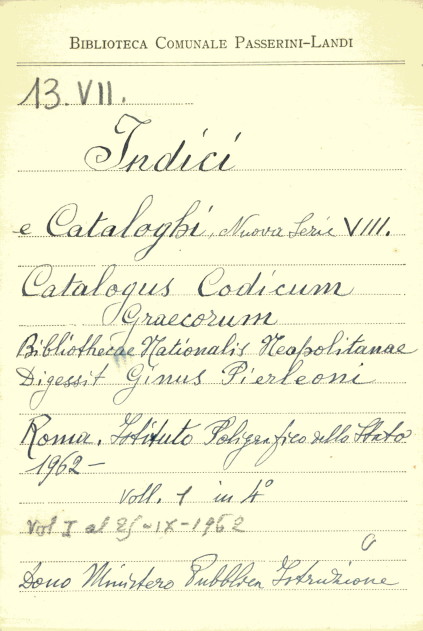 BIBLIOTECA COMUNALE PASSERINI-LANDI
13. VII.
Indici
e Cataloghi, Nuova Serie VIII.
Catalogus Codicum
Graecorum
Bibliothecae Nationalis Neapolitanae
Digessit Ginus Pierleoni
Roma. Istituto Poligrafico dello Stato
1962-
voll. 1 in 4°
Vol I al 25-IX-1962
Dono Ministero Pubblica Istruzione